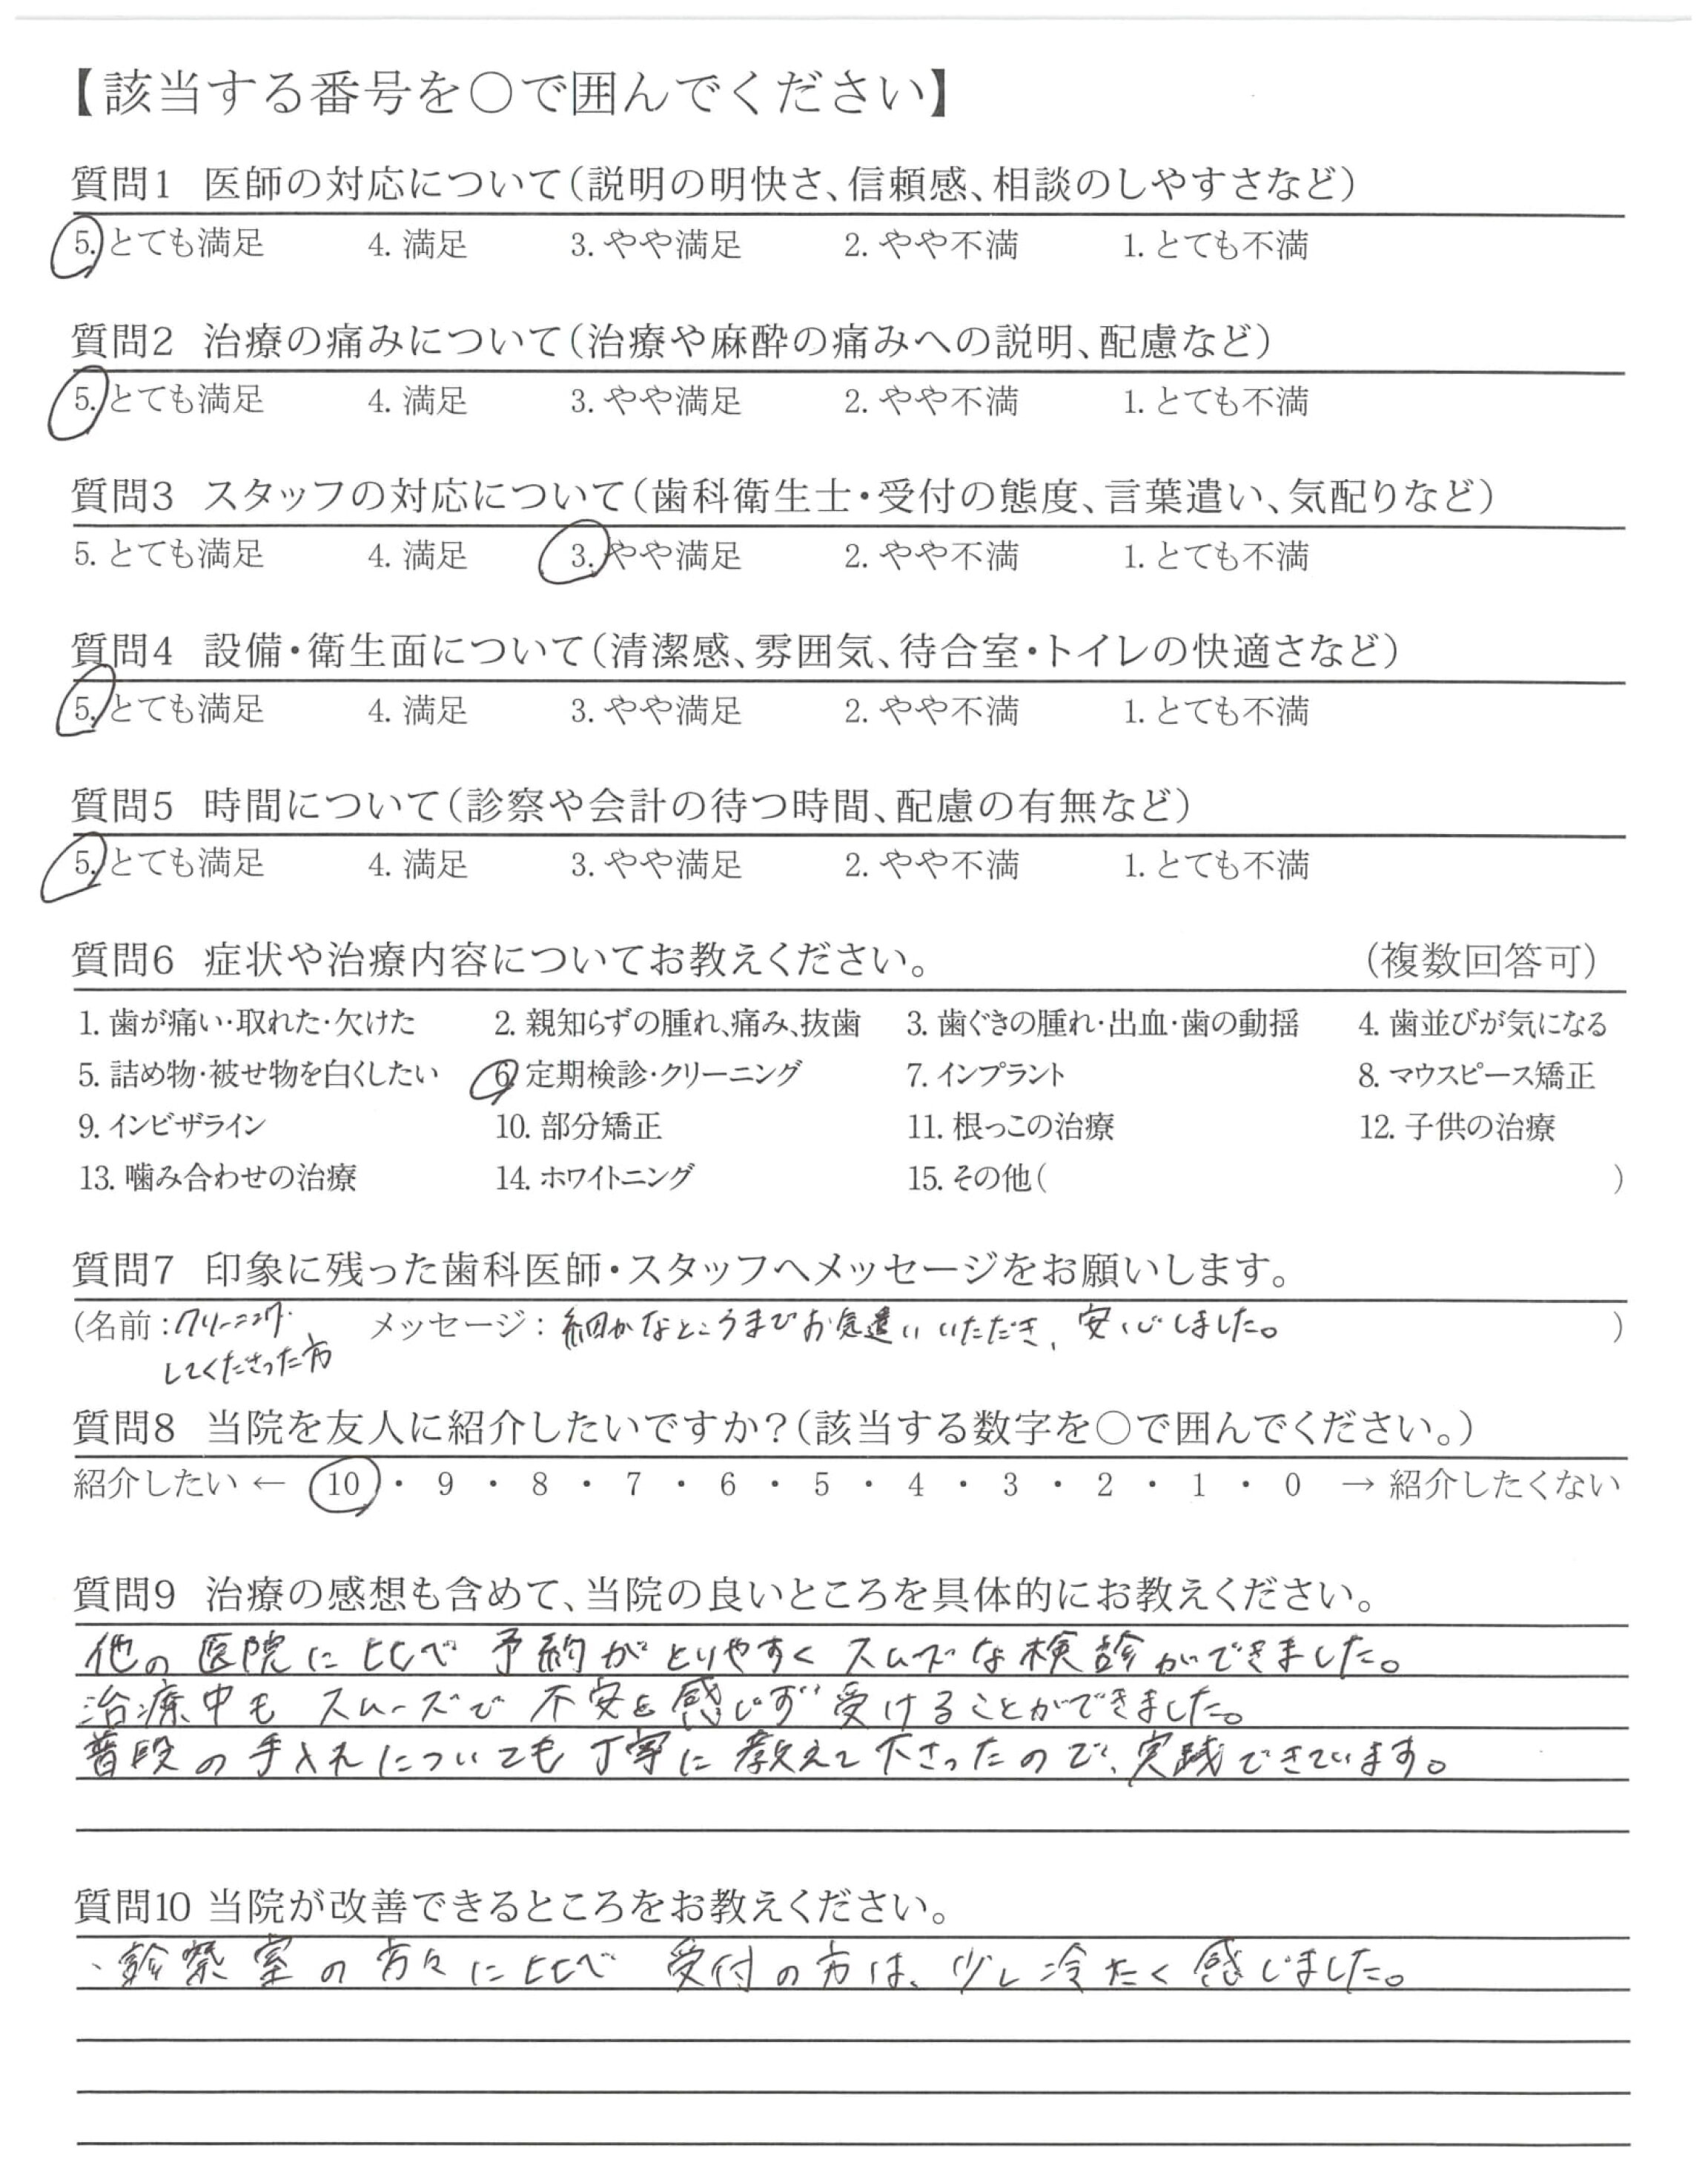 【該当する番号を○で囲んでください】
質問1 医師の対応について(説明の明快さ、信頼感、相談のしやすさなど)
5. とても満足 4. 満足 3. やや満足 2. やや不満 1. とても不満
質問2 治療の痛みについて(治療や麻酔の痛みへの説明、配慮など)
5. とても満足 4. 満足 3. やや満足 2. やや不満 1. とても不満
質問3 スタッフの対応について(歯科衛生士・受付の態度、言葉遣い、気配りなど)
5. とても満足 4. 満足 3. やや満足 2. やや不満 1. とても不満
質問4 設備・衛生面について(清潔感、雰囲気、待合室・トイレの快適さなど)
5. とても満足 4. 満足 3. やや満足 2. やや不満 1. とても不満
質問5 時間について(診察や会計の待つ時間、配慮の有無など)
5. とても満足 4. 満足 3. やや満足 2. やや不満 1. とても不満
質問6 症状や治療内容についてお教えください。 (複数回答可)
1. 歯が痛い・取れた・欠けた 2. 親知らずの腫れ、痛み、抜歯 3. 歯ぐきの腫れ・出血・歯の動揺 4. 歯並びが気になる
5. 詰め物・被せ物を白くしたい 6. 定期検診・クリーニング 7. インプラント 8. マウスピース矯正
9. インビザライン 10. 部分矯正 11. 根っこの治療 12. 子供の治療
13. 噛み合わせの治療 14. ホワイトニング 15. その他( )
質問7 印象に残った歯科医師・スタッフへメッセージをお願いします。
(名前:クリーニング メッセージ: 細かなところまでお気遣いいただき、安心しました。 )
してくださった方
質問8 当院を友人に紹介したいですか?(該当する数字を○で囲んでください。)
紹介したい ← 10 ・ 9 ・ 8 ・ 7 ・ 6 ・ 5 ・ 4 ・ 3 ・ 2 ・ 1 ・ 0 → 紹介したくない
質問9 治療の感想も含めて、当院の良いところを具体的にお教えください。
他の医院に比べ 予約がとりやすく スムーズな検診ができました。
治療中も スムーズで 不安を感じず 受けることができました。
普段の手入れについても丁寧に教えて下さったので、実践できています。
質問10 当院が改善できるところをお教えください。
・診察室の方々に比べ 受付の方は、少し冷たく感じました。